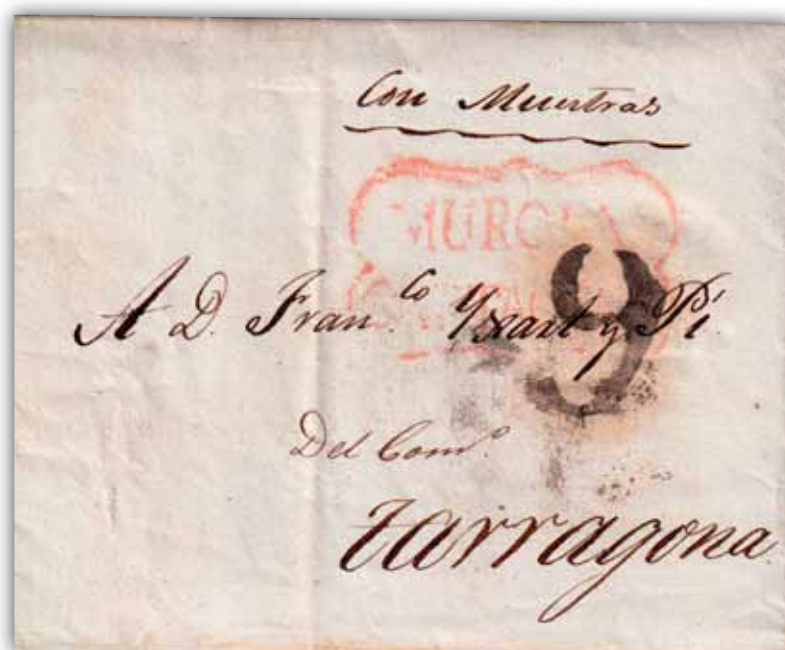 Con Muestras
MURCIA
9
A D. Fran.co Yxart y Pi.
Del Com.o
Tarragona.